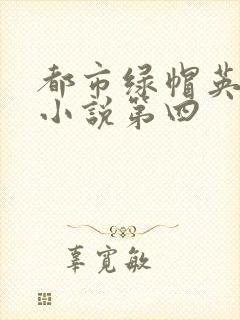 都市绿帽英
小說第四
辜寛敏